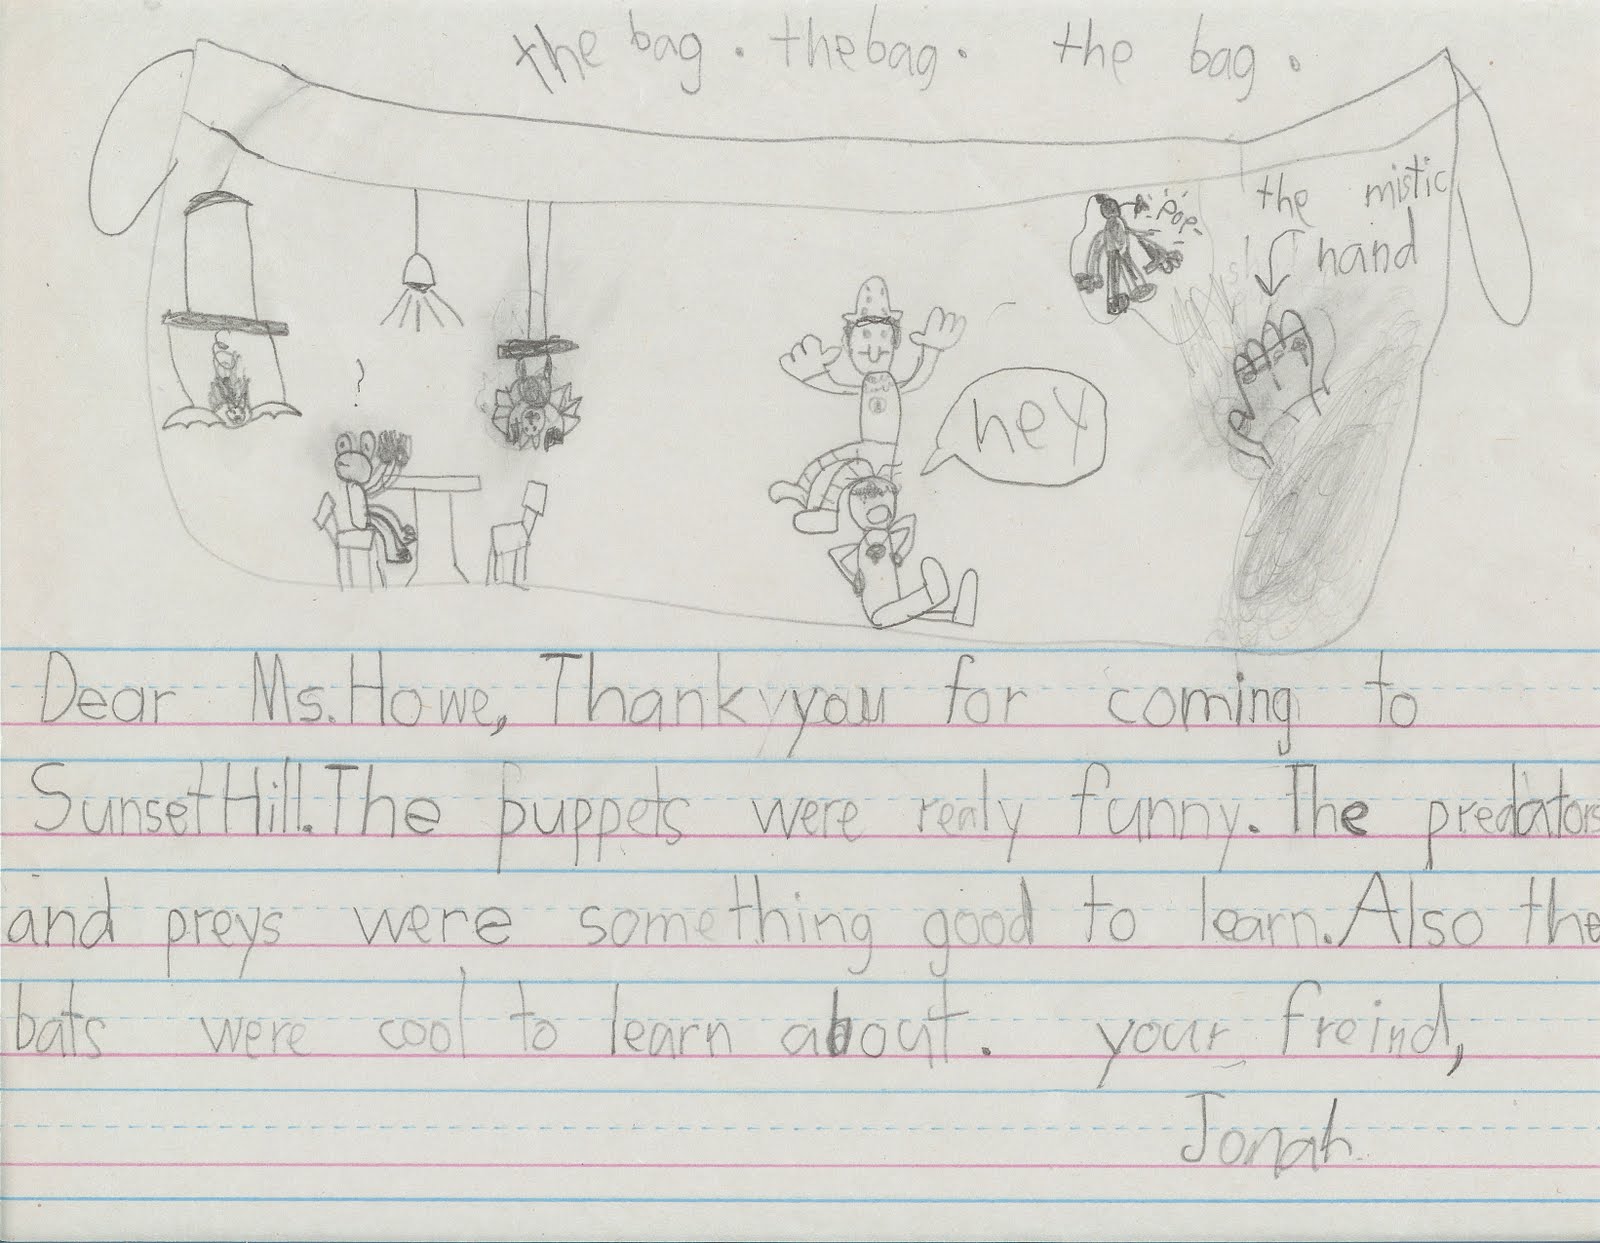 the bag. the bag. the bag.
the mistic
hand
POP
?
hey
Dear Ms. Howe, Thank you for coming to
Sunset Hill. The puppets were realy funny. The predators
and preys were something good to learn. Also the
bats were cool to learn about. your freind,
Jonah